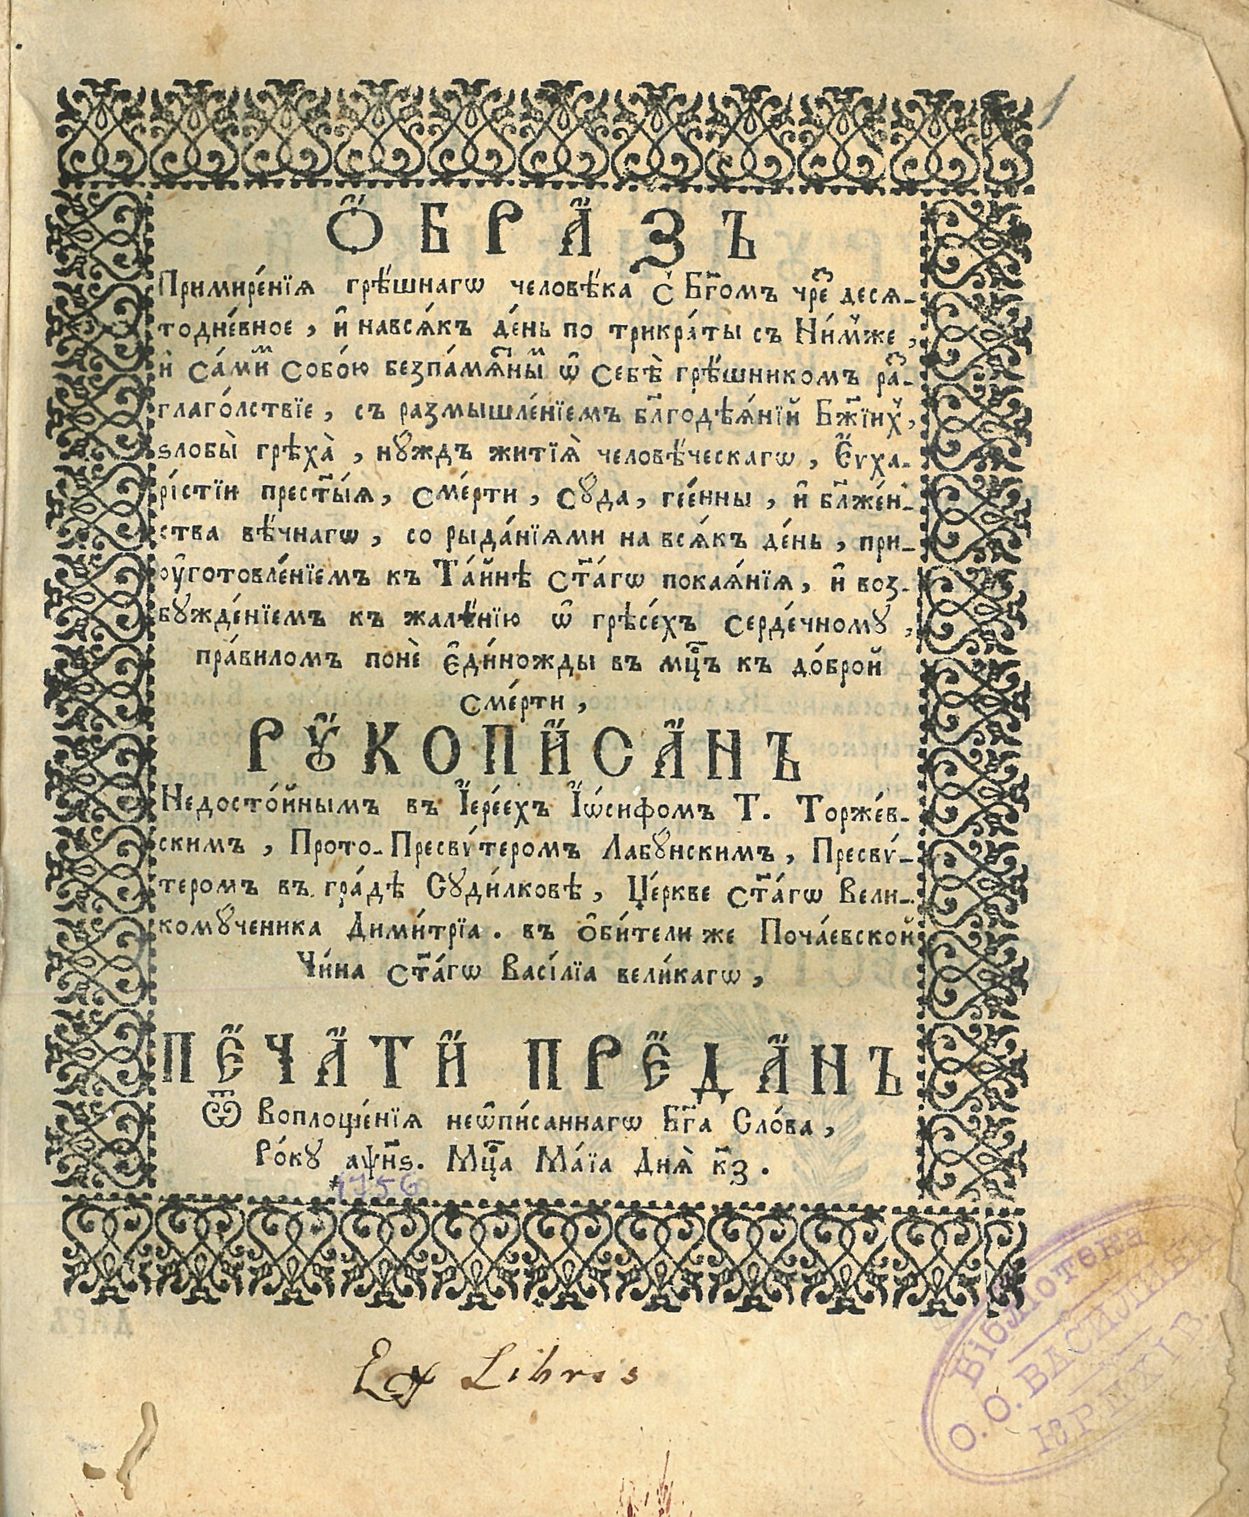 Ѻ҆БРАЗЪ
Примире́нїѧ грѣ́шнагѡ человѣ́ка с̾ Бг҃омъ чре́ деся-
тодне́вное, и҆ навсѧ́къ де́нь по трикра́ты съ Ни́мже,
и҆ са́ми собо́ю безпа́мѧтны ѿ себѐ грѣ́шникомъ ра-
глаго́лствїе, съ размышле́нїемъ бл҃годѣѧ́нїй Бж҃їих,
ѕлобы̀ грѣха̀, нꙋждъ житїѧ̀ человѣ́ческагѡ, Е҆ѵха-
рі́стїи прест҃ы́ѧ, сме́рти, сꙋда̀, гее́нны, и҆ бл҃же́н-
ства вѣ́чнагѡ, со рыда́нїѧми на всѧ́къ де́нь, при-
ѹ҆готовле́нїемъ къ Та́йнѣ ст҃а́гѡ покаѧ́нїѧ, и҆ воз-
бꙋжде́нїемъ къ жале́нїю ѡ҆ грѣсе́хъ серде́чномꙋ,
пра́виломъ понѐ е҆ди́ножды въ мц҃ъ къ до́брой
сме́рти,
РꙊКОПИСАНЪ
Недосто́йнымъ въ І҆ере́ехъ І҆ѡ́сифомъ Т. Торже́в-
скимъ, Прото-Пресвѵ́теромъ Лабꙋ́нскимъ, Пресвѵ́-
теромъ въ гра́дѣ Сꙋди́лковѣ, Це́ркве ст҃а́гѡ Вели-
комꙋ́ченика Дими́трїа. въ ѻ҆би́тели же Поча́евской
Чи́на ст҃а́гѡ Васі́лїа вели́кагѡ,
ПЕЧАТИ ПРЕДАНЪ
Ѿ Воплоще́нїѧ неѡ҆пи́саннагѡ Бг҃а Сло́ва,
Ро́кꙋ аѱн҃ѕ. Мц҃а Ма́їа Днѧ̀ к҃з.
1756
Ex Libris
Бібліотека
О. О. ВАСИЛИЯН